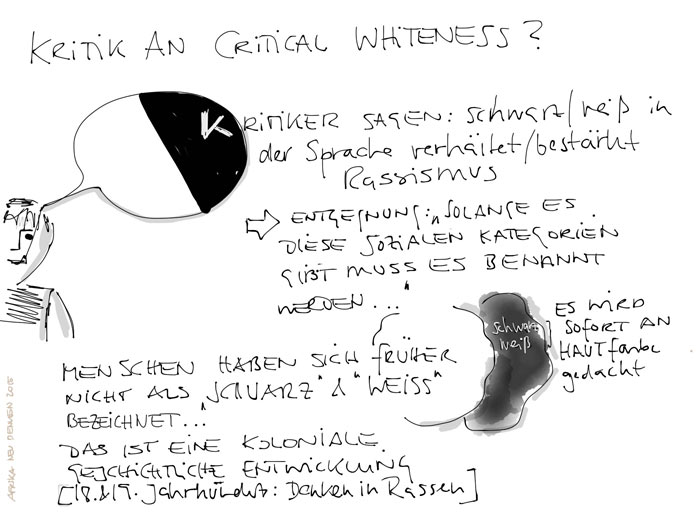 KRITIK AN CRITICAL WHITENESS?
KRITIKER SAGEN: schwarz/weiß in
der Sprache verhärtet/bestärkt
Rassismus
ENTGEGNUNG: "SOLANGE ES
DIESE SOZIALEN KATEGORIEN
GIBT MUSS ES BENANNT
WERDEN..."
schwarz
weiß
ES WIRD
SOFORT AN
HAUTfarbe
gedacht
MENSCHEN HABEN SICH FRÜHER
NICHT ALS "SCHWARZ" & "WEISS"
BEZEICHNET...
DAS IST EINE KOLONIALE
GESCHICHTLICHE ENTWICKLUNG
[18.&19. Jahrhundert: Denken in Rassen]
AFRIKA NEU DENKEN 2015